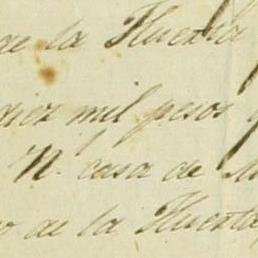 de la Huerta
diez mil pesos
N. casa de
de la Huerta